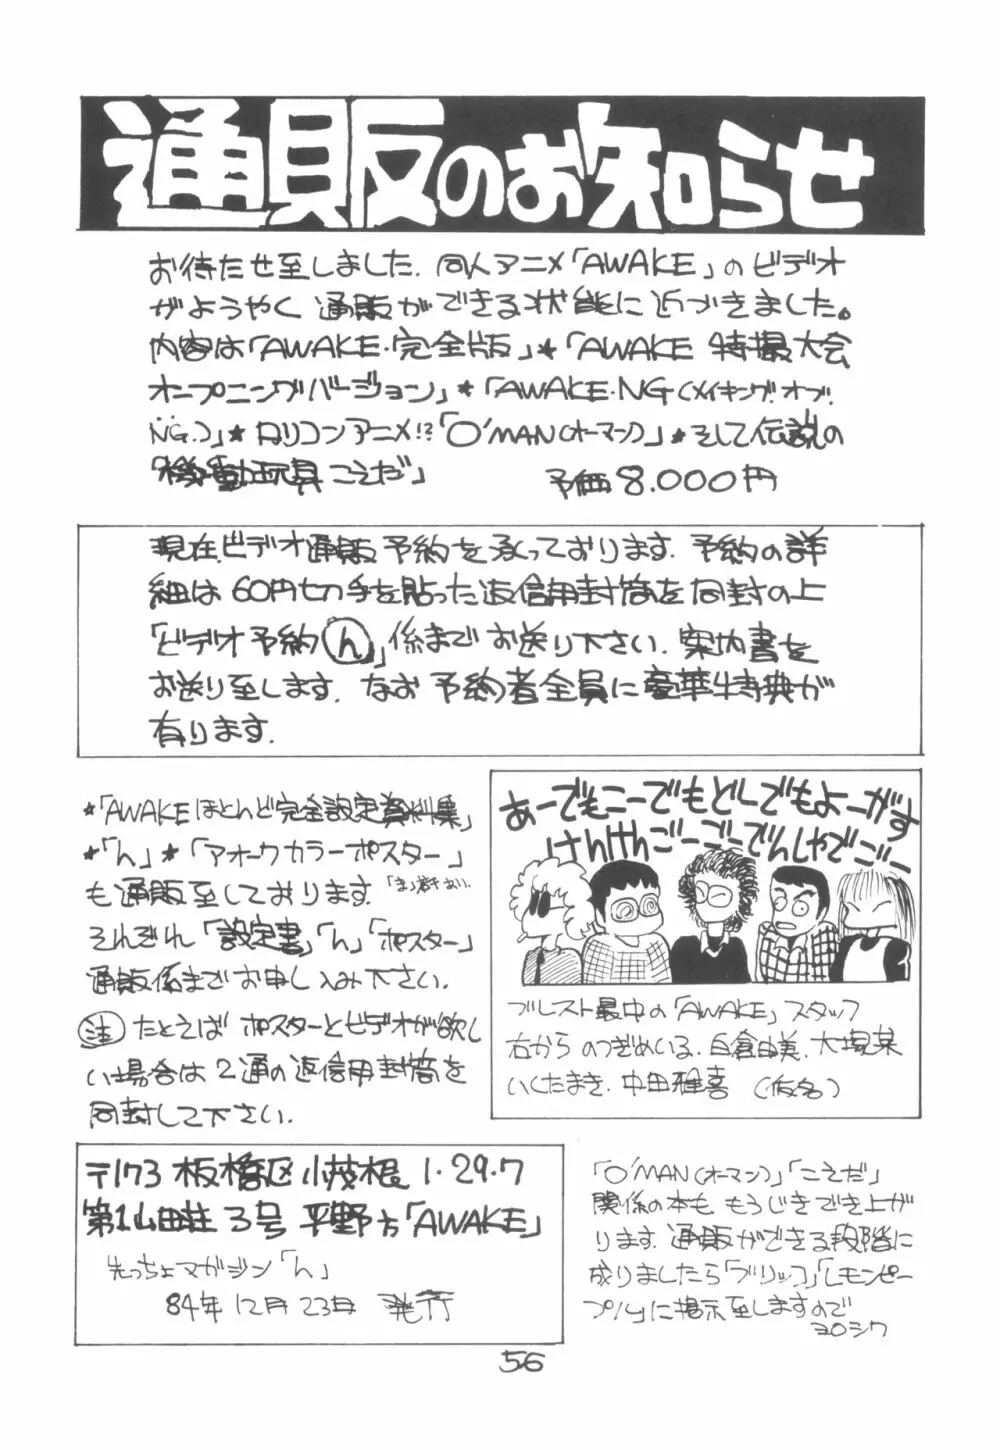 通販のお知らせ
お待たせ至しました。同人アニメ「AWAKE」のビデオ
がようやく通販ができる状態に近づきました。
内容は「AWAKE・完全版」★「AWAKE 特撮大会
オープニングバージョン」★「AWAKE・NG(メイキング・オブ・
NG.)」★ロリコンアニメ!?「O'MAN(オーマン)」★そして伝説の
「機動玩具こえだ」 予価8.000円
現在ビデオ通販予約を承っております。予約の詳
細は60円切手を貼った返信用封筒を同封の上
「ビデオ予約ん」係までお送り下さい。案内書を
お送り至します。なお予約者全員に豪華特典が
有ります。
★「AWAKEほとんど完全設定資料集」
★「ん」★「アオークカラーポスター」
も通販至しております。
それぞれ「設定書」「ん」「ポスター」
通販係までお申し込み下さい。
注 たとえばポスターとビデオが欲し
い場合は2通の返信用封筒を
同封して下さい。
あーでもこーでもどーでもよーがす
けんけんごーごーでんしゃでごー
ブレスト最中の「AWAKE」スタッフ
右からのつぎめいる.白倉由美.大場某
いくたまき.中田雅喜(仮名)
〒173 板橋区小茂根1・29・7
第1山田荘3号 平野方「AWAKE」
先っちょマガジン「ん」
84年12月23日 発行
「O'MAN(オーマン)」「こえだ」
関係の本も もうじきでき上が
ります。通販ができる段階に
成りましたら「ブリッコ」「レモンピー
プル」に掲示至しますので
ヨロシク
56